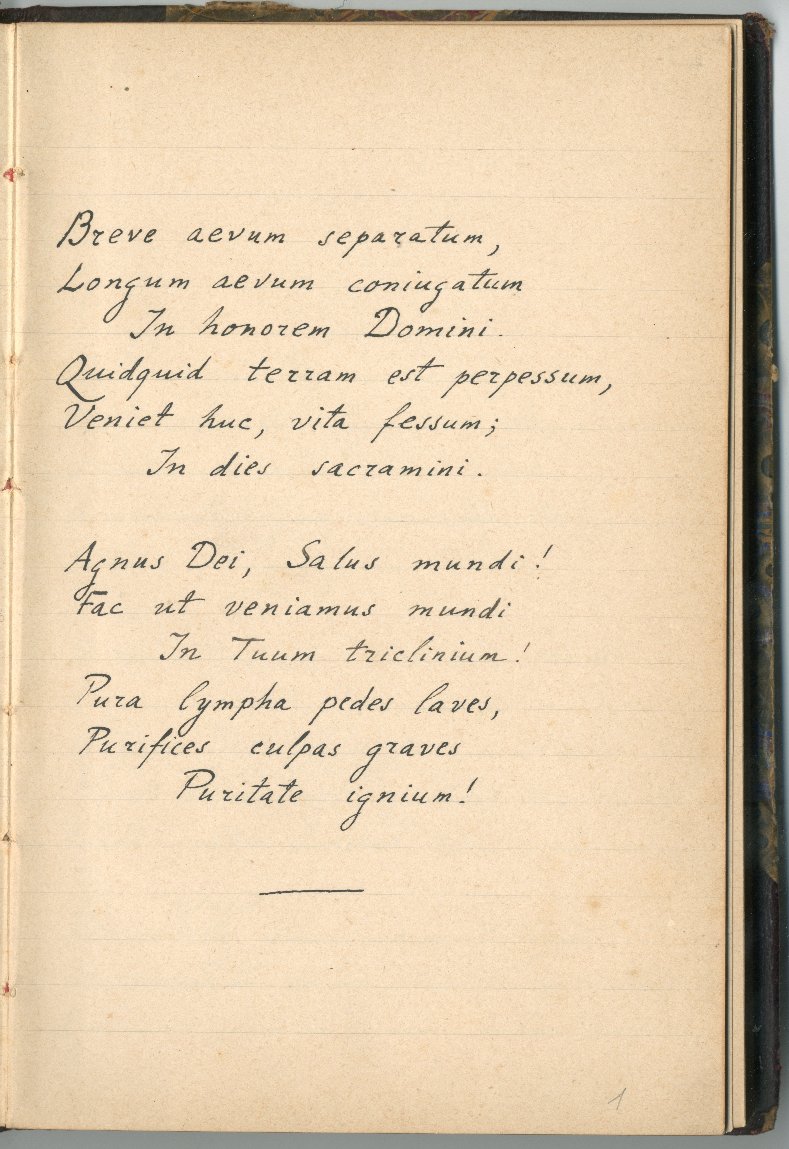 Breve aevum separatum,
Longum aevum coniugatum
In honorem Domini.
Quidquid terram est perpessum,
Veniet huc, vita fessum;
In dies sacramini.
Agnus Dei, Salus mundi!
Fac ut veniamus mundi
In Tuum triclinium!
Pura lympha pedes laves,
Purifices culpas graves
Puritate ignium!
1